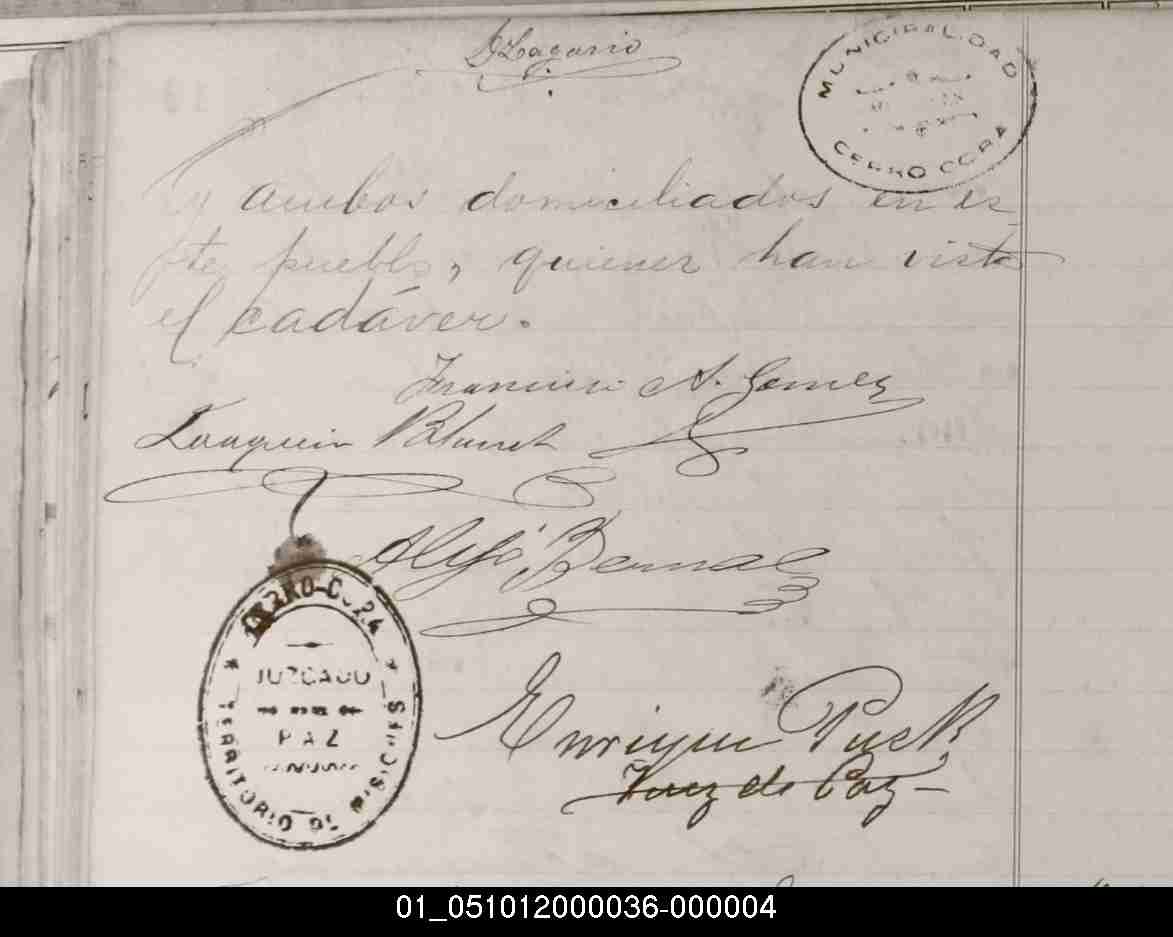 MUNICIPALIDAD
CERRO CORA
y ambos domiciliados en es
te pueblo, quienes han visto
el cadáver.
Francisco A. Gomez
Joaquin
Bernal
CERRO-CORA
JUZGADO
DE
PAZ
TERRITORIO DE MISIONES
Enrique Puck
Juez de Paz
01_051012000036-000004